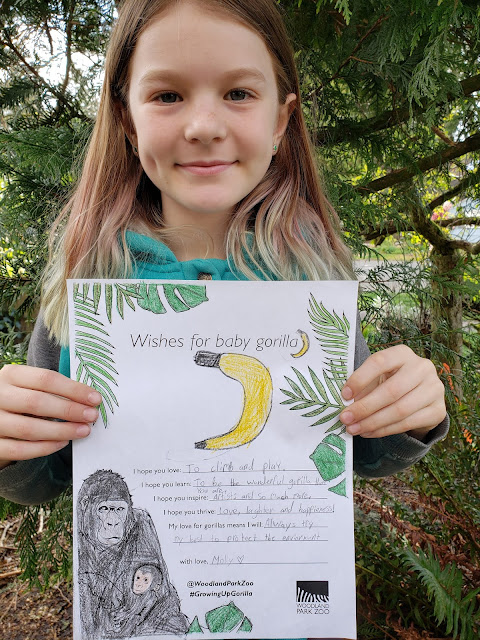 Wishes for baby gorilla
I hope you love: To climb and play.
I hope you learn: To be the wonderful gorilla
you are.
I hope you inspire: artists and so much more.
I hope you thrive: Love, laughter and happieness!
My love for gorillas means I will: Always try
my best to protect the enviorment
with love, Molly ♡
@WoodlandParkZoo
#GrowingUpGorilla
WOODLAND
PARK ZOO